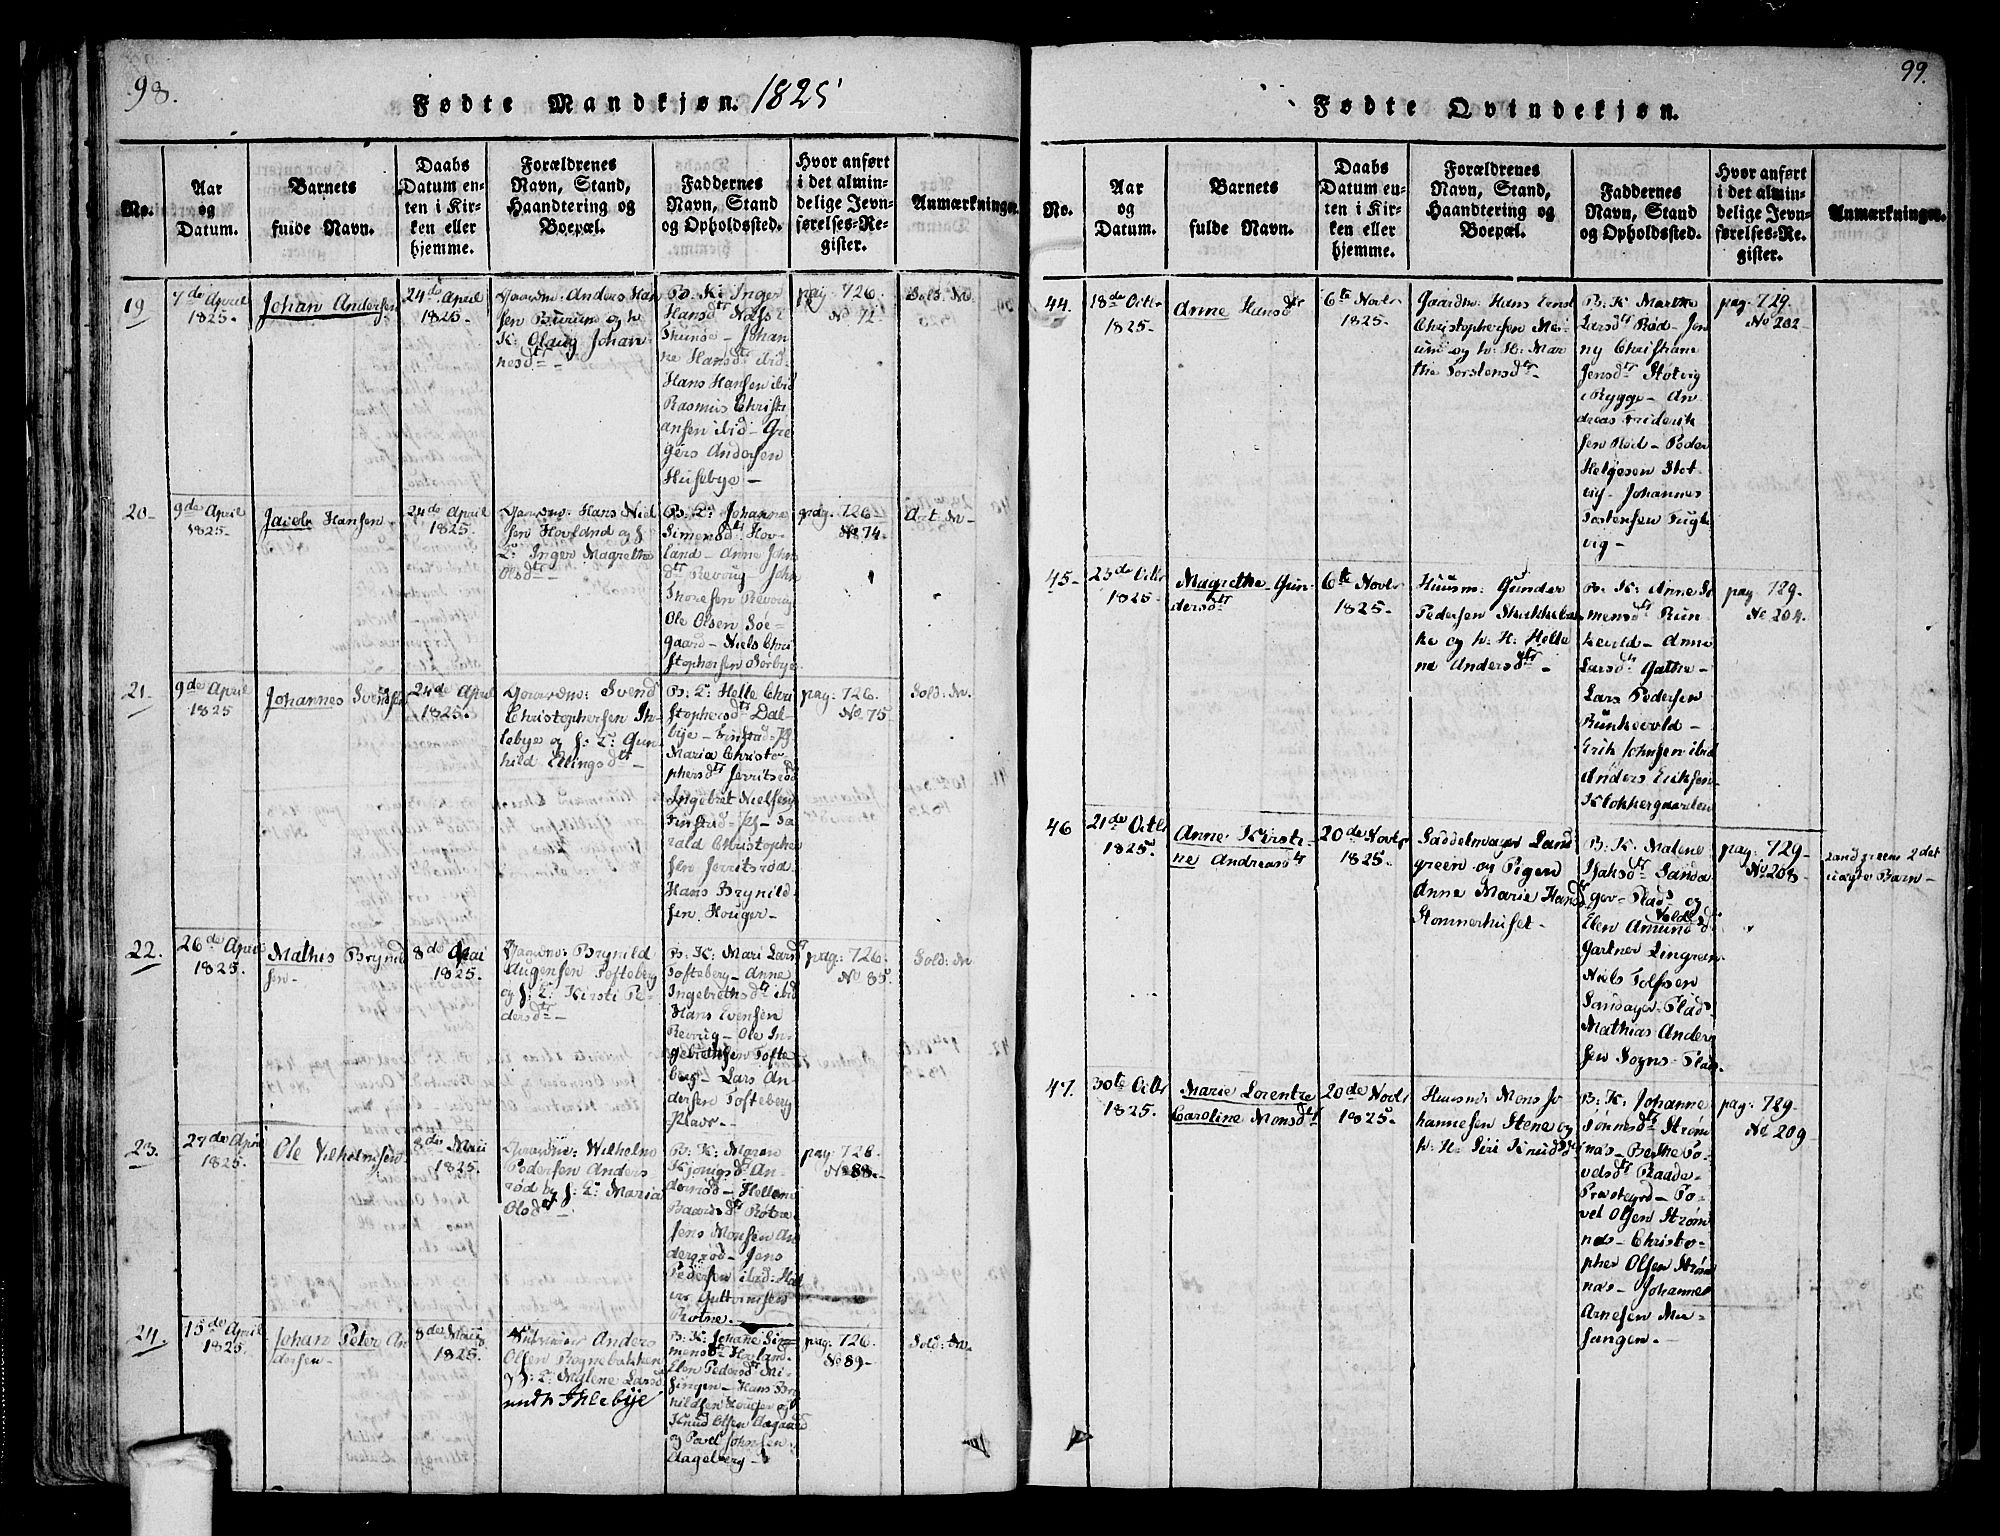 98.
Fødte Mandkjøn. 1825
No.
Aar
og
Datum.
Barnets
fulde Navn.
Daabs
Datum en-
ten i Kir-
ken eller
hjemme.
Forældrenes
Navn, Stand,
Haandtering og
Boepæl.
Faddernes
Navn, Stand
og Opholdssted.
Hvor anført
i det almin-
delige Jevn-
førelses-Re-
gister.
Anmærkninger.
19
7de April
1825.
Johan Andersen
24de April
1825.
Gaardm: Anders Han
sen Burum og h
K: Olaug Johan
nesdtr
B. K: Inger
Hansdtr Nafse
Johan
ne Hansdtr ibid
Hans Hansen ibid
Rasmus Christi
ansen ibid – Gre
gers Andersen
Husebye –
pag. 726.
No 72.
20
9de April
1825.
Jacob Hansen
24de April
1825.
Gaardm: Hans Niel
sen Hovland og f
Inger Magrethe
Olsdtr –
Johanne
Simensdtr Hov
land – Anne John
dtr Revoug – John
Thoresen Revoug
Ole Olsen Soe-
gaard – Niels Chri
stophersen Sørbye
pag. 726.
No 74.
21.
9de April
1825
Johannes Svendsen
24de April
1825.
Gaardm: Svend
Christophersen Ih
lebye og f: Gun
hild Ellingsdtr –
Helle Chri
stophersdtr Dal-
bye –
Maria Christo-
phersdtr Jerritsrød
Ingebret Nielsen
Ha
rald Christopher
sen Jerritsrød
Hans Brynild
sen Houger –
pag. 726.
No. 75
Sold. No.
22.
26de April
1825.
Mathis Brynild
sen –
8de Mai
1825.
Gaardm: Brynild
Augensen Tofteberg
og f: Kirsti Pe-
dersdtr
B. K: Mari Lars
Tofteberg – Anne
Ingebrethsdtr ibid
Hans Evensen
Revoug – Ole In-
gebrethsen Tofte
berg – Lars An-
dersen Tofteberg
pag. 726.
No 85.
23.
27de April
1825.
Ole Vilhelmsen
8de Mai
1825.
Gaardm: Wilhelm
Pedersen Anders
rød og f: Maria
Olsdtr –
B. K. Maren
An-
dersrød – Hellene
Baardsdtr Røtne
Jens Monsen An
dersrød – Jens
Pedersen ibid: Hal
vor Guttormsen
Røtne.
pag. 726.
No 88.
24.
15de April
1825.
Johan Peter An
dersen –
8de Mai
1825.
Anders
Olsen Rognebakken
og f: Mylene Larsd
under Ihlebye
B. K. Johane Si-
mensdtr Hovland
Elen Pedersdtr Mi-
singen – Hans Bry
nildsen Houger og
Knud Olsen Aagaard
og Povel Johnsen
Hageberg –
pag. 726.
No 89 –
Sold. No.
99.
Fødte Qvindekjøn.
No.
Aar
og
Datum.
Barnets
fulde Navn.
Daabs
Datum en-
ten i Kir-
ken eller
hjemme.
Forældrenes
Navn, Stand,
Haandtering og
Boepæl.
Faddernes
Navn, Stand
og Opholdssted.
Hvor anført
i det almin-
delige Jevn-
førelses-Re-
gister.
Anmærkninger.
44.
18de Octbr
1825 –
Anne Hansdtr
6te Novbr
1825.
Gaardm: Hans Ernst
Christophersen Mei
um og h: K: Mar
the Torstensdtr –
B. K Marthe
Larsdtr Rød – Jen
ny Christiane
Jensdtr Støtvig
i Rygge – An
dreas Friderik
sen Rød – Peder
Helgesen Støt
vig – Johannes
Tostensen Fugle
vig –
pag. 729.
No 202
45 –
23de Octbr
1825.
Magrethe Gun
dersdtr
6te Novbr
1825.
Huusm: Gunder
Pedersen Skakkebæ
ke og h: K: Helle
ne Andersdtr –
B. K: Anne Si
mensdtr Run
kevold – Anne
Larsdtr Gathe –
Lars Pedersen
Runkevold –
Erik Johnsen ibid
Anders Eriksen
Klokkergaarden
pag. 729.
No 204.
46
21de Octbr
1825.
Anne Kirsti-
ne Andreasdtr
20de Novbr
1825.
Saddelmager Land
green og Pigen
Anne Marie Hansdtr
Stommerhuset –
B. K. Malene
Isaksdtr Sanda
ger – Plads og
Elen Amundsdtr
Volds
Gartner Lingreen
Niels Tolfsen
Sandager – Plads
Mathias Ander
sen Sogns – Plads.
pag. 729 –
No 208 –
Landgreens 2det
uægte Barn –
47.
30te Octbr
1825.
Marie Lorentze
Caroline Monsdtr
20de Novbr
1825.
Huusm: Mons Jo
hannesen Stene og
h: K: Siri Knudsdtr
B. K. Johanne
Tønnesdtr Strøm
næs – Berthe Po-
velsdtr Raade –
Præstegrd – Po-
vel Olsen Strøm
næs – Christo-
pher Olsen Strøm
næs – Johannes
Arnesen Mi-
singen. –
pag: 729 –
No 209